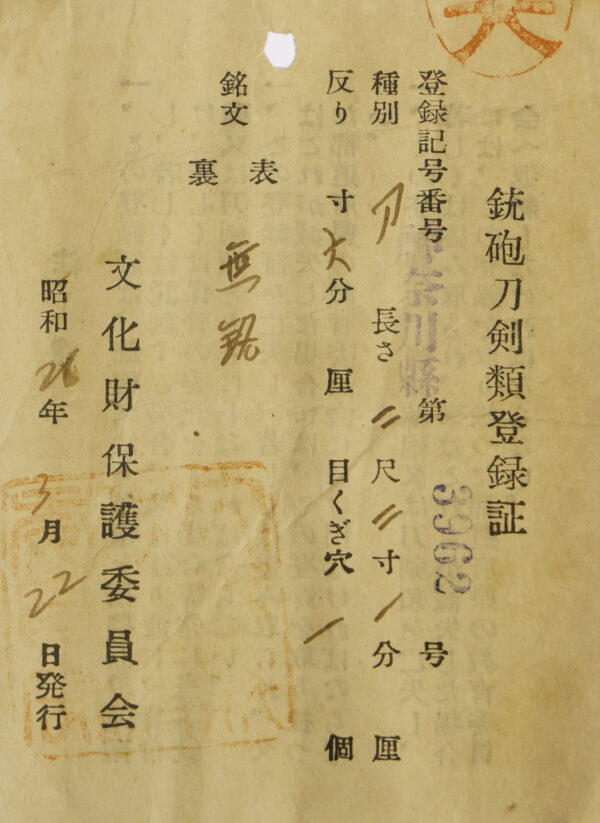 銃砲刀剣類登録証
登録記号番号 神奈川縣 第 3962 号
種別 刀 長さ 二尺二寸一分 厘
反り 寸六分 厘 目くぎ穴 一 個
銘文 表 無銘
裏
文化財保護委員会
昭和26年3月22日発行